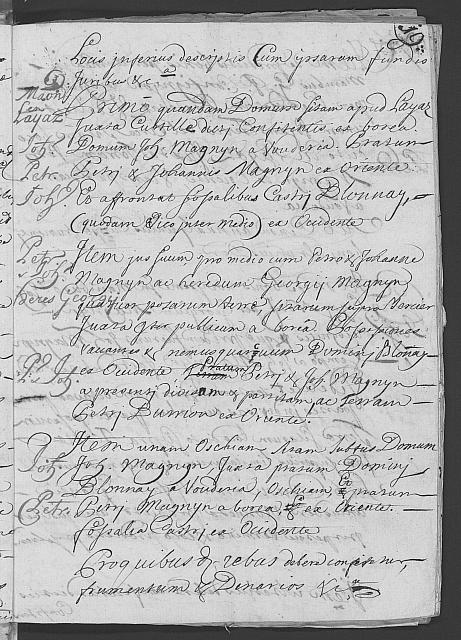 19
Locis inferius descriptis Cum ipsarum fundis
Juribus &c.ª
Primo quandam Domum sitam apud Layaz
Layaz
Juxta Curtille dicti Confitentis ex borea
Joh.
Domum Joh. Magnyn a Vouderia, Pratum
Petr.
Petri & Johannis Magnyn ex Oriente
Joh.
Et affrontat fossalibus Castri Blonnay,
(quodam Vico inter medio) ex Occidente
Petr.
Item jus suum pro medio cum Petro & Johanne
& Joh.
Magnyn ac heredum Georgij Magnyn
quatuor posarum terre, sitarum supra Vercier
Juxta Iter publicum a borea Possessiones
vacantes & nemus quorum Domini Blonay
ex Occidente Pratum Petri & Joh. Magnyn
a presenti divisam & partitam ac terram
Petri Durrion ex Oriente.
Item unam Oschiam sitam subtus Domum
Joh.
Joh. Magnyn, Juxta pratum Domini
Blonnay a Vouderia, Oschiam, & pratum
Petr.
Petri Magnyn a borea & ex Oriente.
fossalia Castri ex Occidente
Pro quibus rebus debere confitetur,
frumentum & Denarios &c.ª